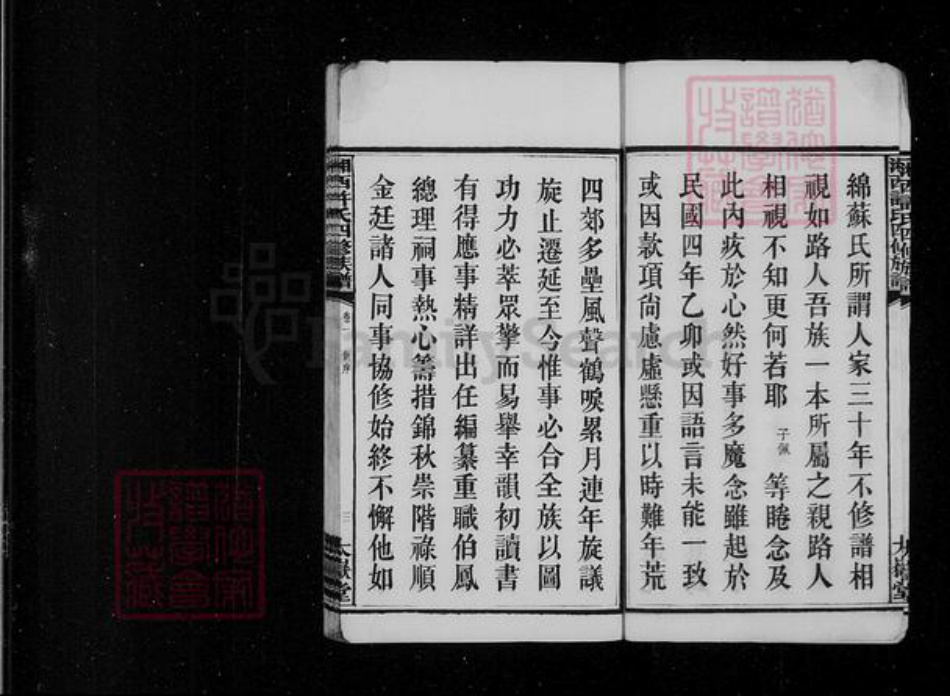 綿蘇氏所謂人家三十年不修譜相
視如路人吾族一本所屬之親路人
相視不知更何若耶 子佩 等睠念及
此內疚於心然好事多魔念雖起於
民國四年乙卯或因語言未能一致
或因款項尙慮虛懸重以時難年荒
四郊多壘風聲鶴唳累月連年旋議
旋止遷延至今惟事必合全族以圖
功力必萃眾擎而易舉幸韻初讀書
有得應事精詳出任編纂重職伯鳳
總理祠事熱心籌措錦秋崇階祿順
金廷諸人同事協修始終不懈他如
湘西許氏四修族譜
卷一
三
太嶽堂
FamilySearch